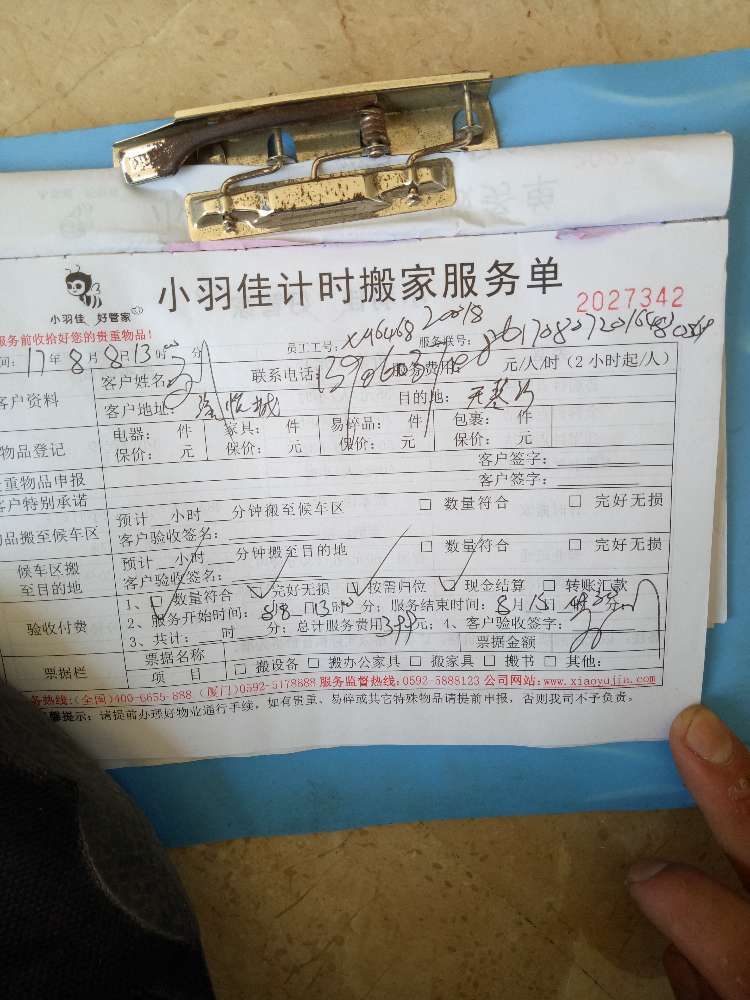 小羽佳 好管家
小羽佳计时搬家服务单
2027342
服务前收拾好您的贵重物品!
间: 17年8月8日13时 分
员工工号: XM6468 20018
服务联号:
客户资料
客户姓名:
联系电话:
服务费用: 元/人/时(2小时起/人)
客户地址:
目的地:
物品登记
电器: 件 家具: 件 易碎品: 件 包裹: 件
保价: 元 保价: 元 保价: 元 保价: 元
重物品申报
客户签字:
客户特别承诺
客户签字:
物品搬至候车区
预计 小时 分钟搬至候车区 □ 数量符合 □ 完好无损
客户验收签名:
候车区搬
至目的地
预计 小时 分钟搬至目的地 □ 数量符合 □ 完好无损
客户验收签名:
验收付费
1、□ 数量符合 □ 完好无损 □ 按需归位 □ 现金结算 □ 转账汇款
2、服务开始时间: 8月8日13时 分; 服务结束时间: 8月 日 时 分;
3、共计: 时 分; 总计服务费用 元; 4、客户验收签字:
票据栏
票据名称
票据金额
项 目 □ 搬设备 □ 搬办公家具 □ 搬家具 □ 搬书 □ 其他:
务热线:(全国)400-6655-888 (厦门)0592-5178888 服务监督热线:0592-5888123 公司网站:www.xiaoyujia.com
馨提示: 请提前办理好物业通行手续, 如有贵重、易碎或其它特殊物品请提前申报, 否则我司不予负责。